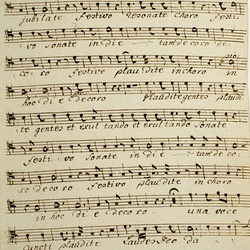 jubilate festivo resonate choro festi
vo sonate in die tam decoro de
coro festivo plaudite in choro in
hoc di e decoro plaudite gentes plaudi
te gentes et exul tando et exul tando sonate
festi vo sonate in di e tam de co
ro de co ro festivo plaudite in choro
in hoc di e decoro una voce
cuncti plaudite